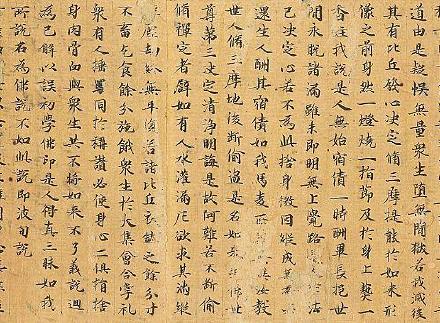 道由是疑悮無量衆生墮無間獄若我滅後
其有比丘發心決定脩三摩提能於如來形
像之前身然一燈燒一指節及於身上爇一
香炷我說是人無始宿債一時酬畢長挹世
間永脫諸漏雖未即明無上覺路法
已決定心若不為此捨身微因縱成
還生人酬其宿債如我馬麥汝教
世人脩三摩地後斷偷盜是名如佛世
尊第三決定清淨明誨是故阿難若不斷偷
脩禪定者譬如有人水灌漏巵欲求其滿縱
塵劫終無平復若諸比丘衣鉢之餘分寸
不畜乞食餘分施餓衆生於大集會合掌礼
衆有人捶詈同於稱讚必使身心二俱捐捨
身肉骨血與衆生共不將如來不了義說迴
為己解以誤初學佛印是人得真三昧如我
所說名為佛說不如此說即波旬說